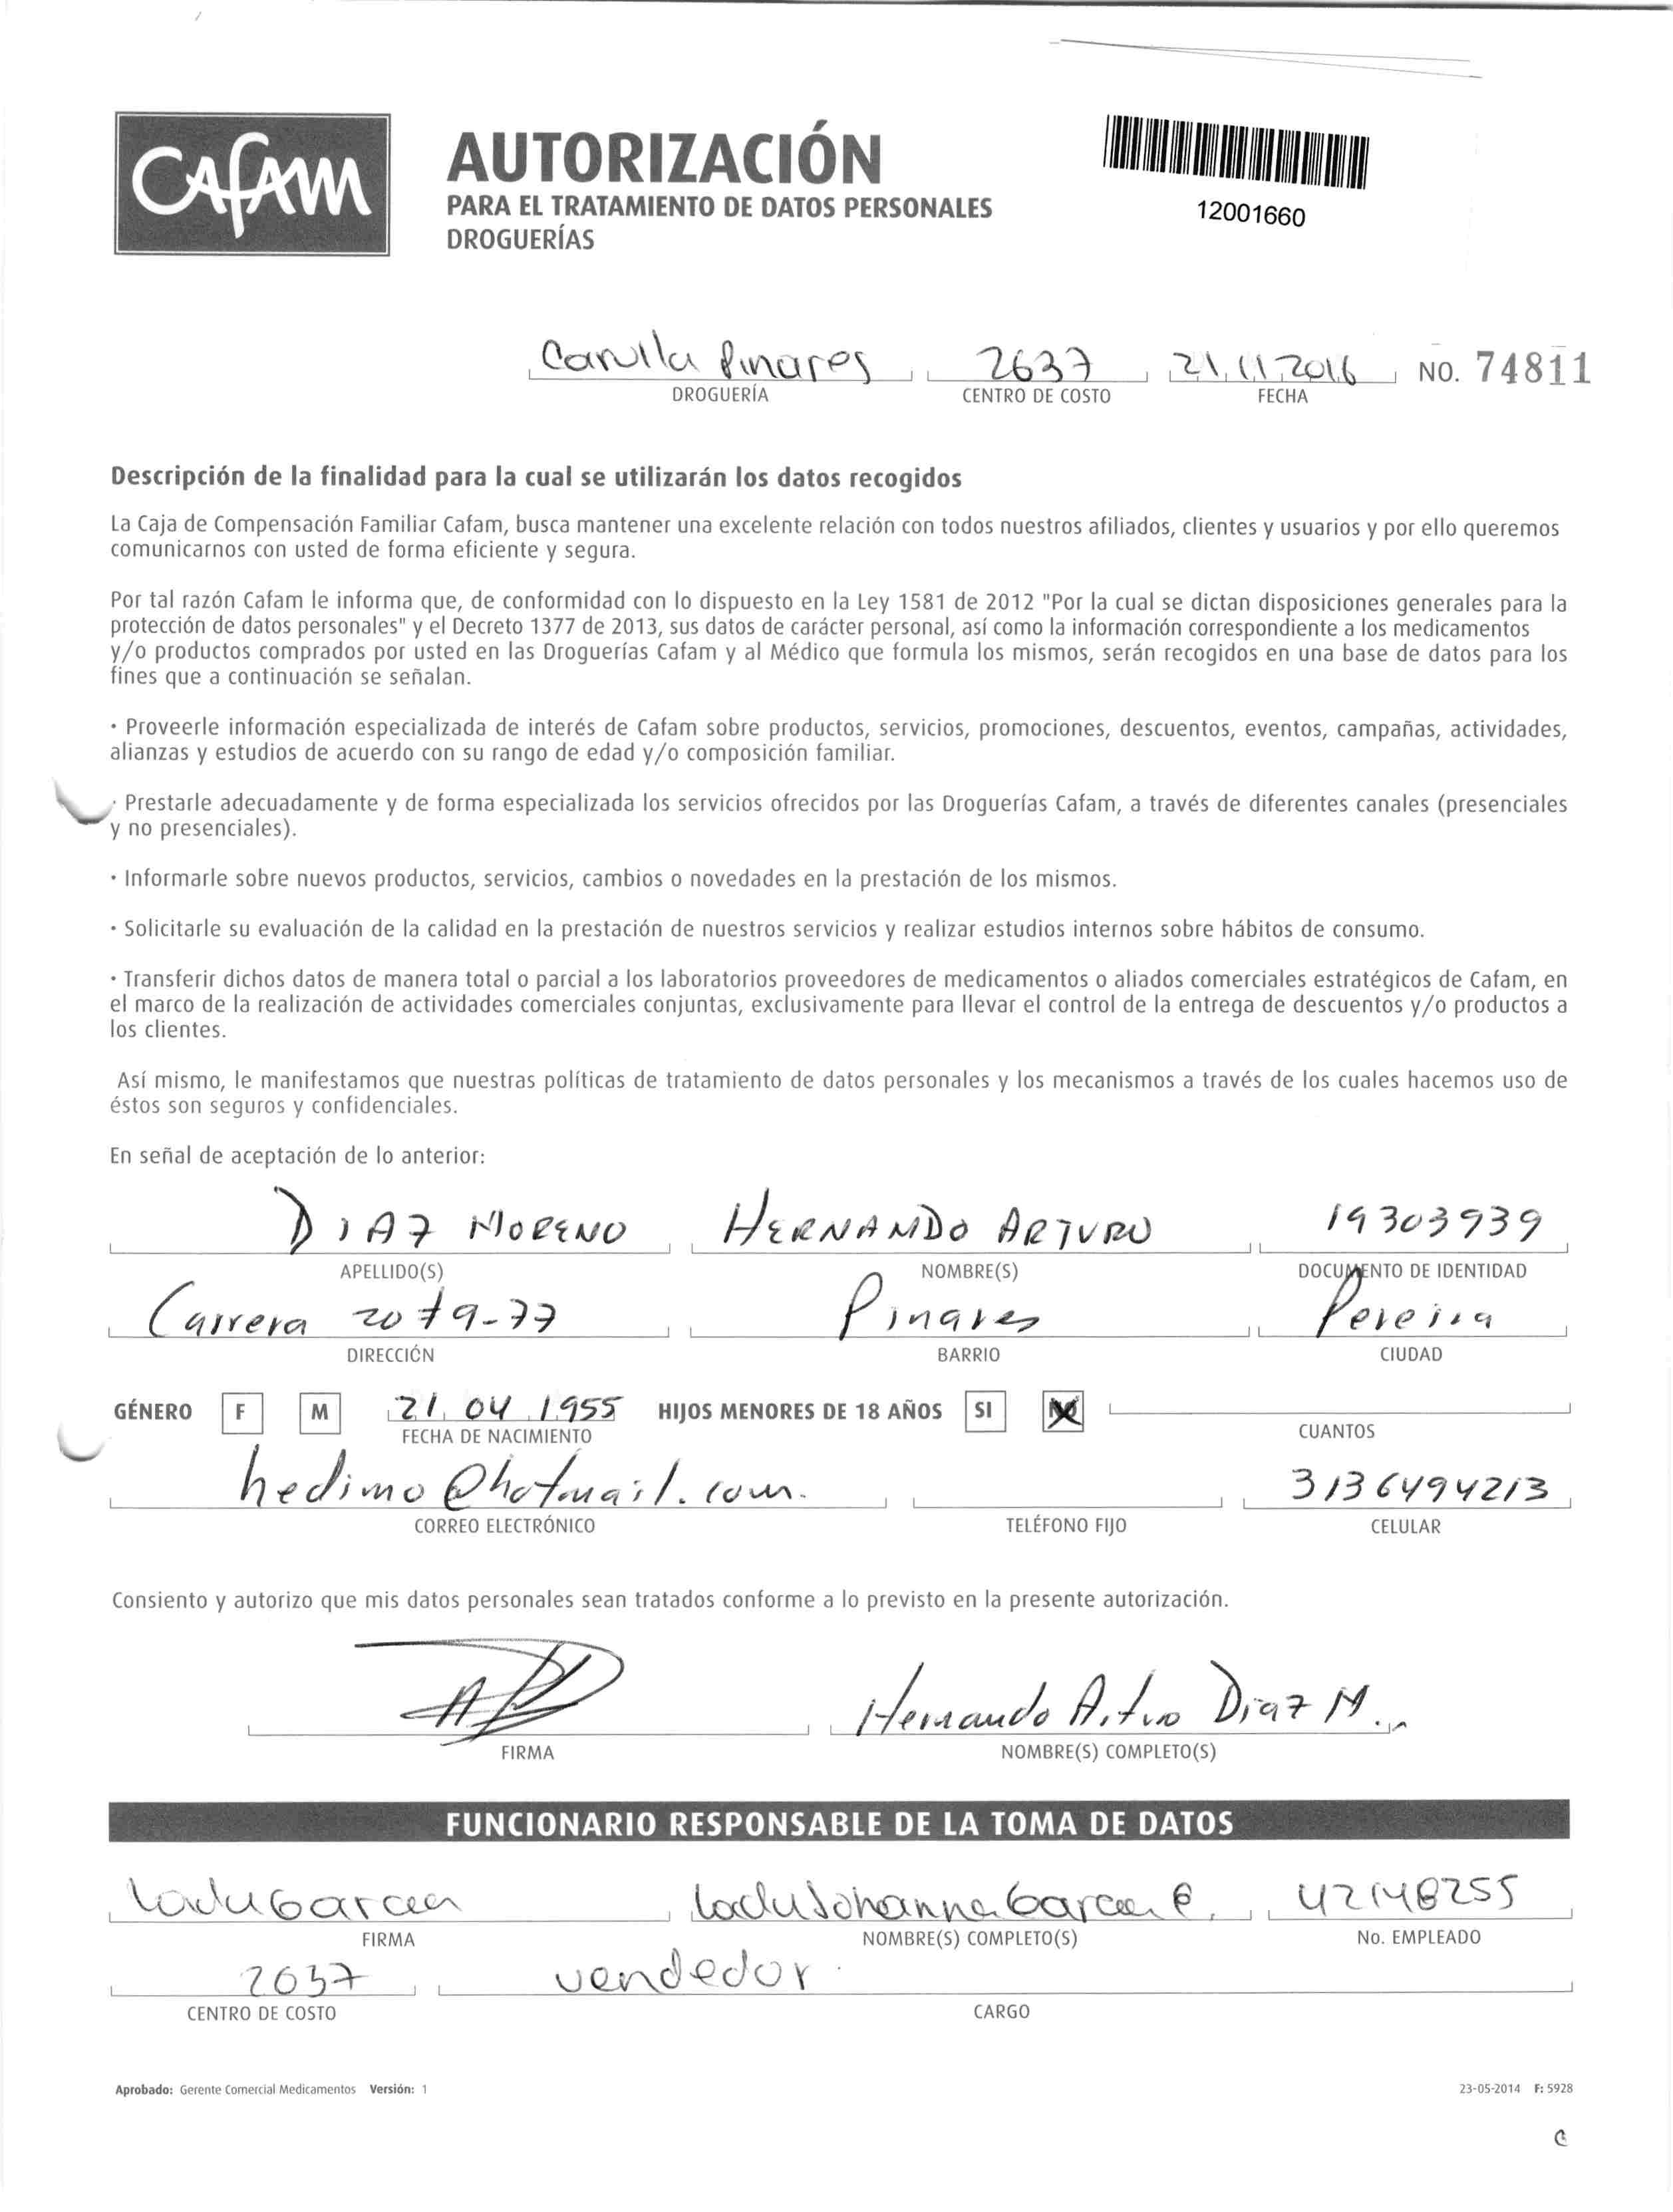 CAFAM
AUTORIZACIÓN
PARA EL TRATAMIENTO DE DATOS PERSONALES
DROGUERÍAS
12001660
Pinares 2637 21 11 2016 NO. 74811
DROGUERÍA CENTRO DE COSTO FECHA
Descripción de la finalidad para la cual se utilizarán los datos recogidos
La Caja de Compensación Familiar Cafam, busca mantener una excelente relación con todos nuestros afiliados, clientes y usuarios y por ello queremos
comunicarnos con usted de forma eficiente y segura.
Por tal razón Cafam le informa que, de conformidad con lo dispuesto en la Ley 1581 de 2012 "Por la cual se dictan disposiciones generales para la
protección de datos personales" y el Decreto 1377 de 2013, sus datos de carácter personal, así como la información correspondiente a los medicamentos
y/o productos comprados por usted en las Droguerías Cafam y al Médico que formula los mismos, serán recogidos en una base de datos para los
fines que a continuación se señalan.
· Proveerle información especializada de interés de Cafam sobre productos, servicios, promociones, descuentos, eventos, campañas, actividades,
alianzas y estudios de acuerdo con su rango de edad y/o composición familiar.
· Prestarle adecuadamente y de forma especializada los servicios ofrecidos por las Droguerías Cafam, a través de diferentes canales (presenciales
y no presenciales).
· Informarle sobre nuevos productos, servicios, cambios o novedades en la prestación de los mismos.
· Solicitarle su evaluación de la calidad en la prestación de nuestros servicios y realizar estudios internos sobre hábitos de consumo.
· Transferir dichos datos de manera total o parcial a los laboratorios proveedores de medicamentos o aliados comerciales estratégicos de Cafam, en
el marco de la realización de actividades comerciales conjuntas, exclusivamente para llevar el control de la entrega de descuentos y/o productos a
los clientes.
Así mismo, le manifestamos que nuestras políticas de tratamiento de datos personales y los mecanismos a través de los cuales hacemos uso de
éstos son seguros y confidenciales.
En señal de aceptación de lo anterior:
DIAZ MORENO HERNANDO ARTURO 19303939
APELLIDO(S) NOMBRE(S) DOCUMENTO DE IDENTIDAD
Carrera 20 # 9-77 Pinares Pereira
DIRECCIÓN BARRIO CIUDAD
GÉNERO F M 21 04 1955 HIJOS MENORES DE 18 AÑOS SI NO
FECHA DE NACIMIENTO CUANTOS
hedimo@hotmail.com. 3136494213
CORREO ELECTRÓNICO TELÉFONO FIJO CELULAR
Consiento y autorizo que mis datos personales sean tratados conforme a lo previsto en la presente autorización.
Hernando Arturo Diaz M.
FIRMA NOMBRE(S) COMPLETO(S)
FUNCIONARIO RESPONSABLE DE LA TOMA DE DATOS
Garcia Johanna Garcia 42148255
FIRMA NOMBRE(S) COMPLETO(S) No. EMPLEADO
2637 vendedor
CENTRO DE COSTO CARGO
Aprobado: Gerente Comercial Medicamentos Versión: 1 23-05-2014 F: 5928